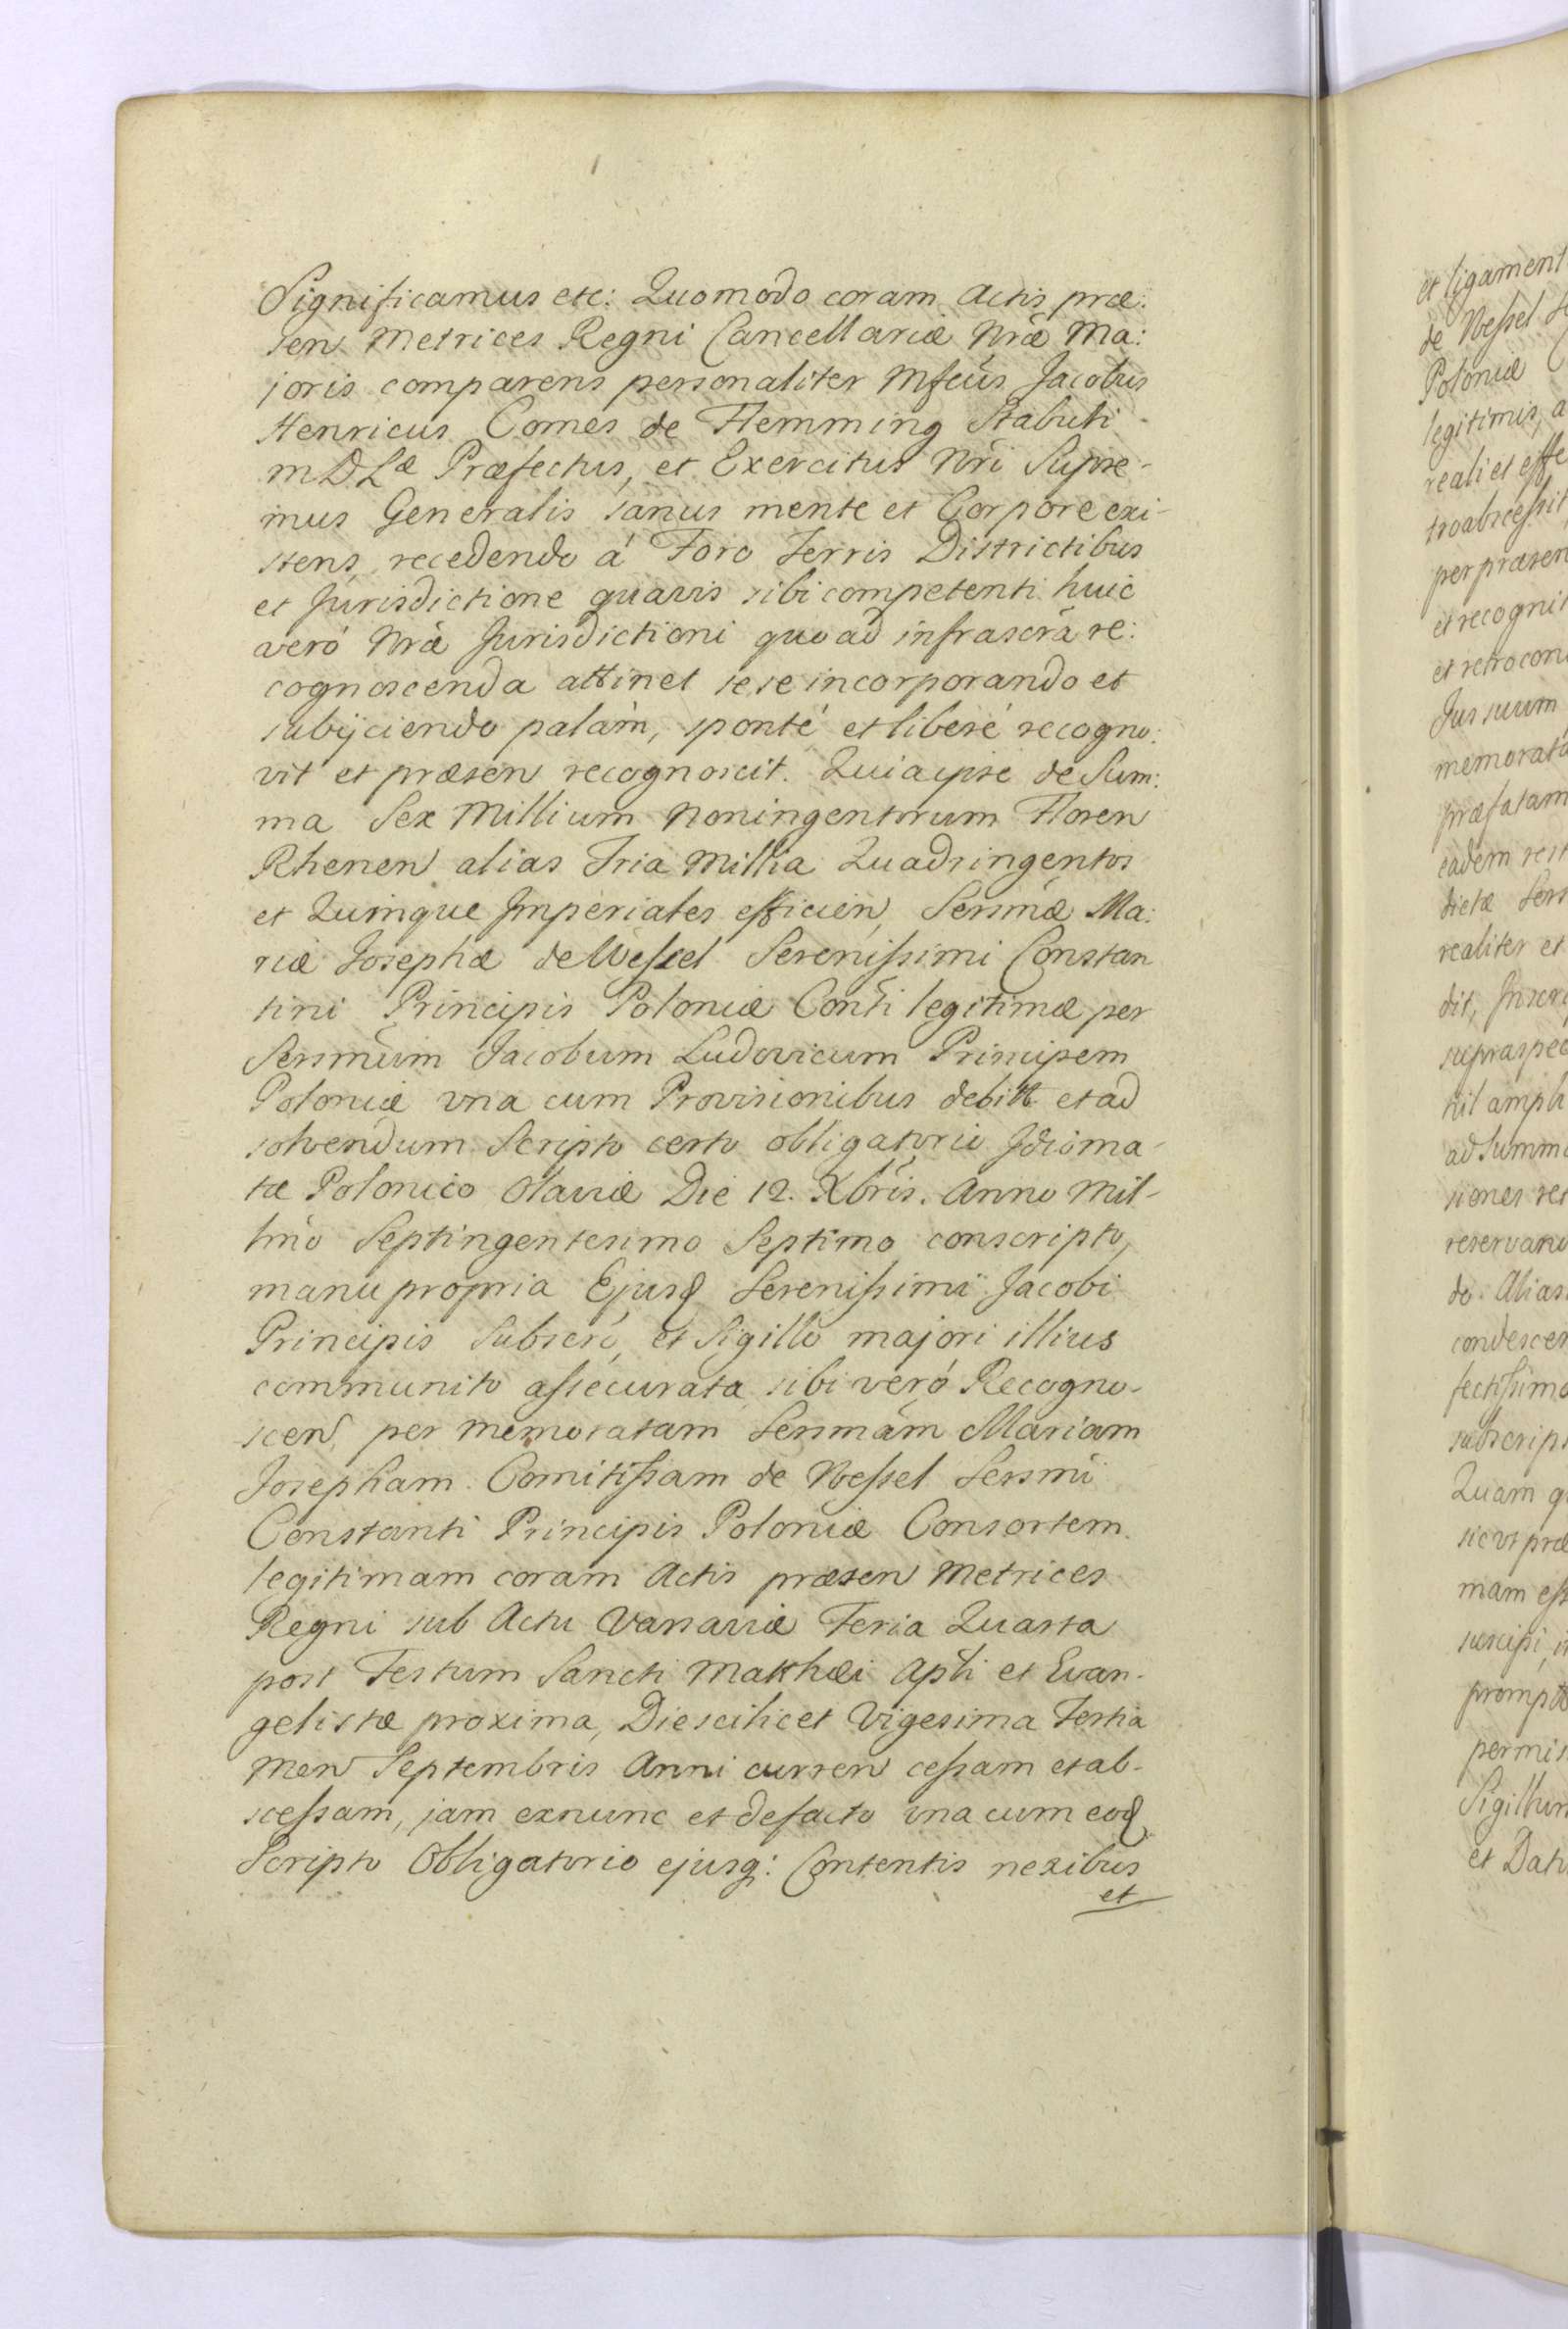 Significamus etc: Quomodo coram Actis præ:
sen Metrices Regni Cancellariæ Nræ Ma:
joris comparens personaliter Mfcus Jacobus
Henricus Comes de Flemming Stabuli
MDLæ Præfectus, et Exercitus Nri Supre-
mus Generalis sanus mente et Corpore exi-
stens, recedendo á Foro Terris Districtibus
et Jurisdictione quavis sibi competenti huic
veró Nræ Jurisdictioni quo ad infrascra re:
cognoscenda attinet sese incorporando et
subijciendo palàm, sponté et liberé recogno:
vit et præsen recognoscit. Quia ipse de Sum:
ma Sex Millium Noningentorum Floren
Rhenen alias Tria Millia Quadringentos
et Quinque Imperiales efficien, Sersmæ Ma:
riæ Josephæ de Wessel Serenissimi Constan
tini Principis Poloniæ Conti legitimæ per
Sersmum Jacobum Ludovicum Principem
Poloniæ vna cum Provisionibus debitæ et ad
solvendum Scripto certo obligatorio Idioma-
te Polonico Olaviæ Die 12. Xbris. Anno Mil-
lmo Septingentesimo Septimo conscripto,
manu propria Ejusd Serenissimi Jacobi
Principis Subscro, et Sigillo majori illius
communito assecurata, sibi veró Recogno-
scen, per memoratam Sersmam Mariam
Josepham Comitissam de Wessel Sersmi
Constanti Principis Poloniæ Consortem
legitimam coram Actis præsen Metrices
Regni sub Actu Varsaviæ Feria Quarta
post Festum Sancti Matthæi Apli et Evan-
gelistæ proxima, Die scilicet Vigesima Tertia
Men Septembris Anni curren cessam et ab-
scessam, jam exnunc et defacto vna cum eod
Scripto Obligatorio ejusq: Contentis nexibus
et
et ligament
de Wessel
Poloniæ
legitimis, a
reali et effe
troabscessit
per præsen
et recognit
et retrocon
Jus suum
memorata
præfatam
eadem rest
dictæ Sers
realiter et
dit, Inscri
supraspec
nil ampli
ad Summa
siones res
reservand
do. Alias
condescen
fectissimo
subscrips
Quam q
sic vt præ
mam ess
suscipi, i
prompte
permis
Sigillum
et Datu